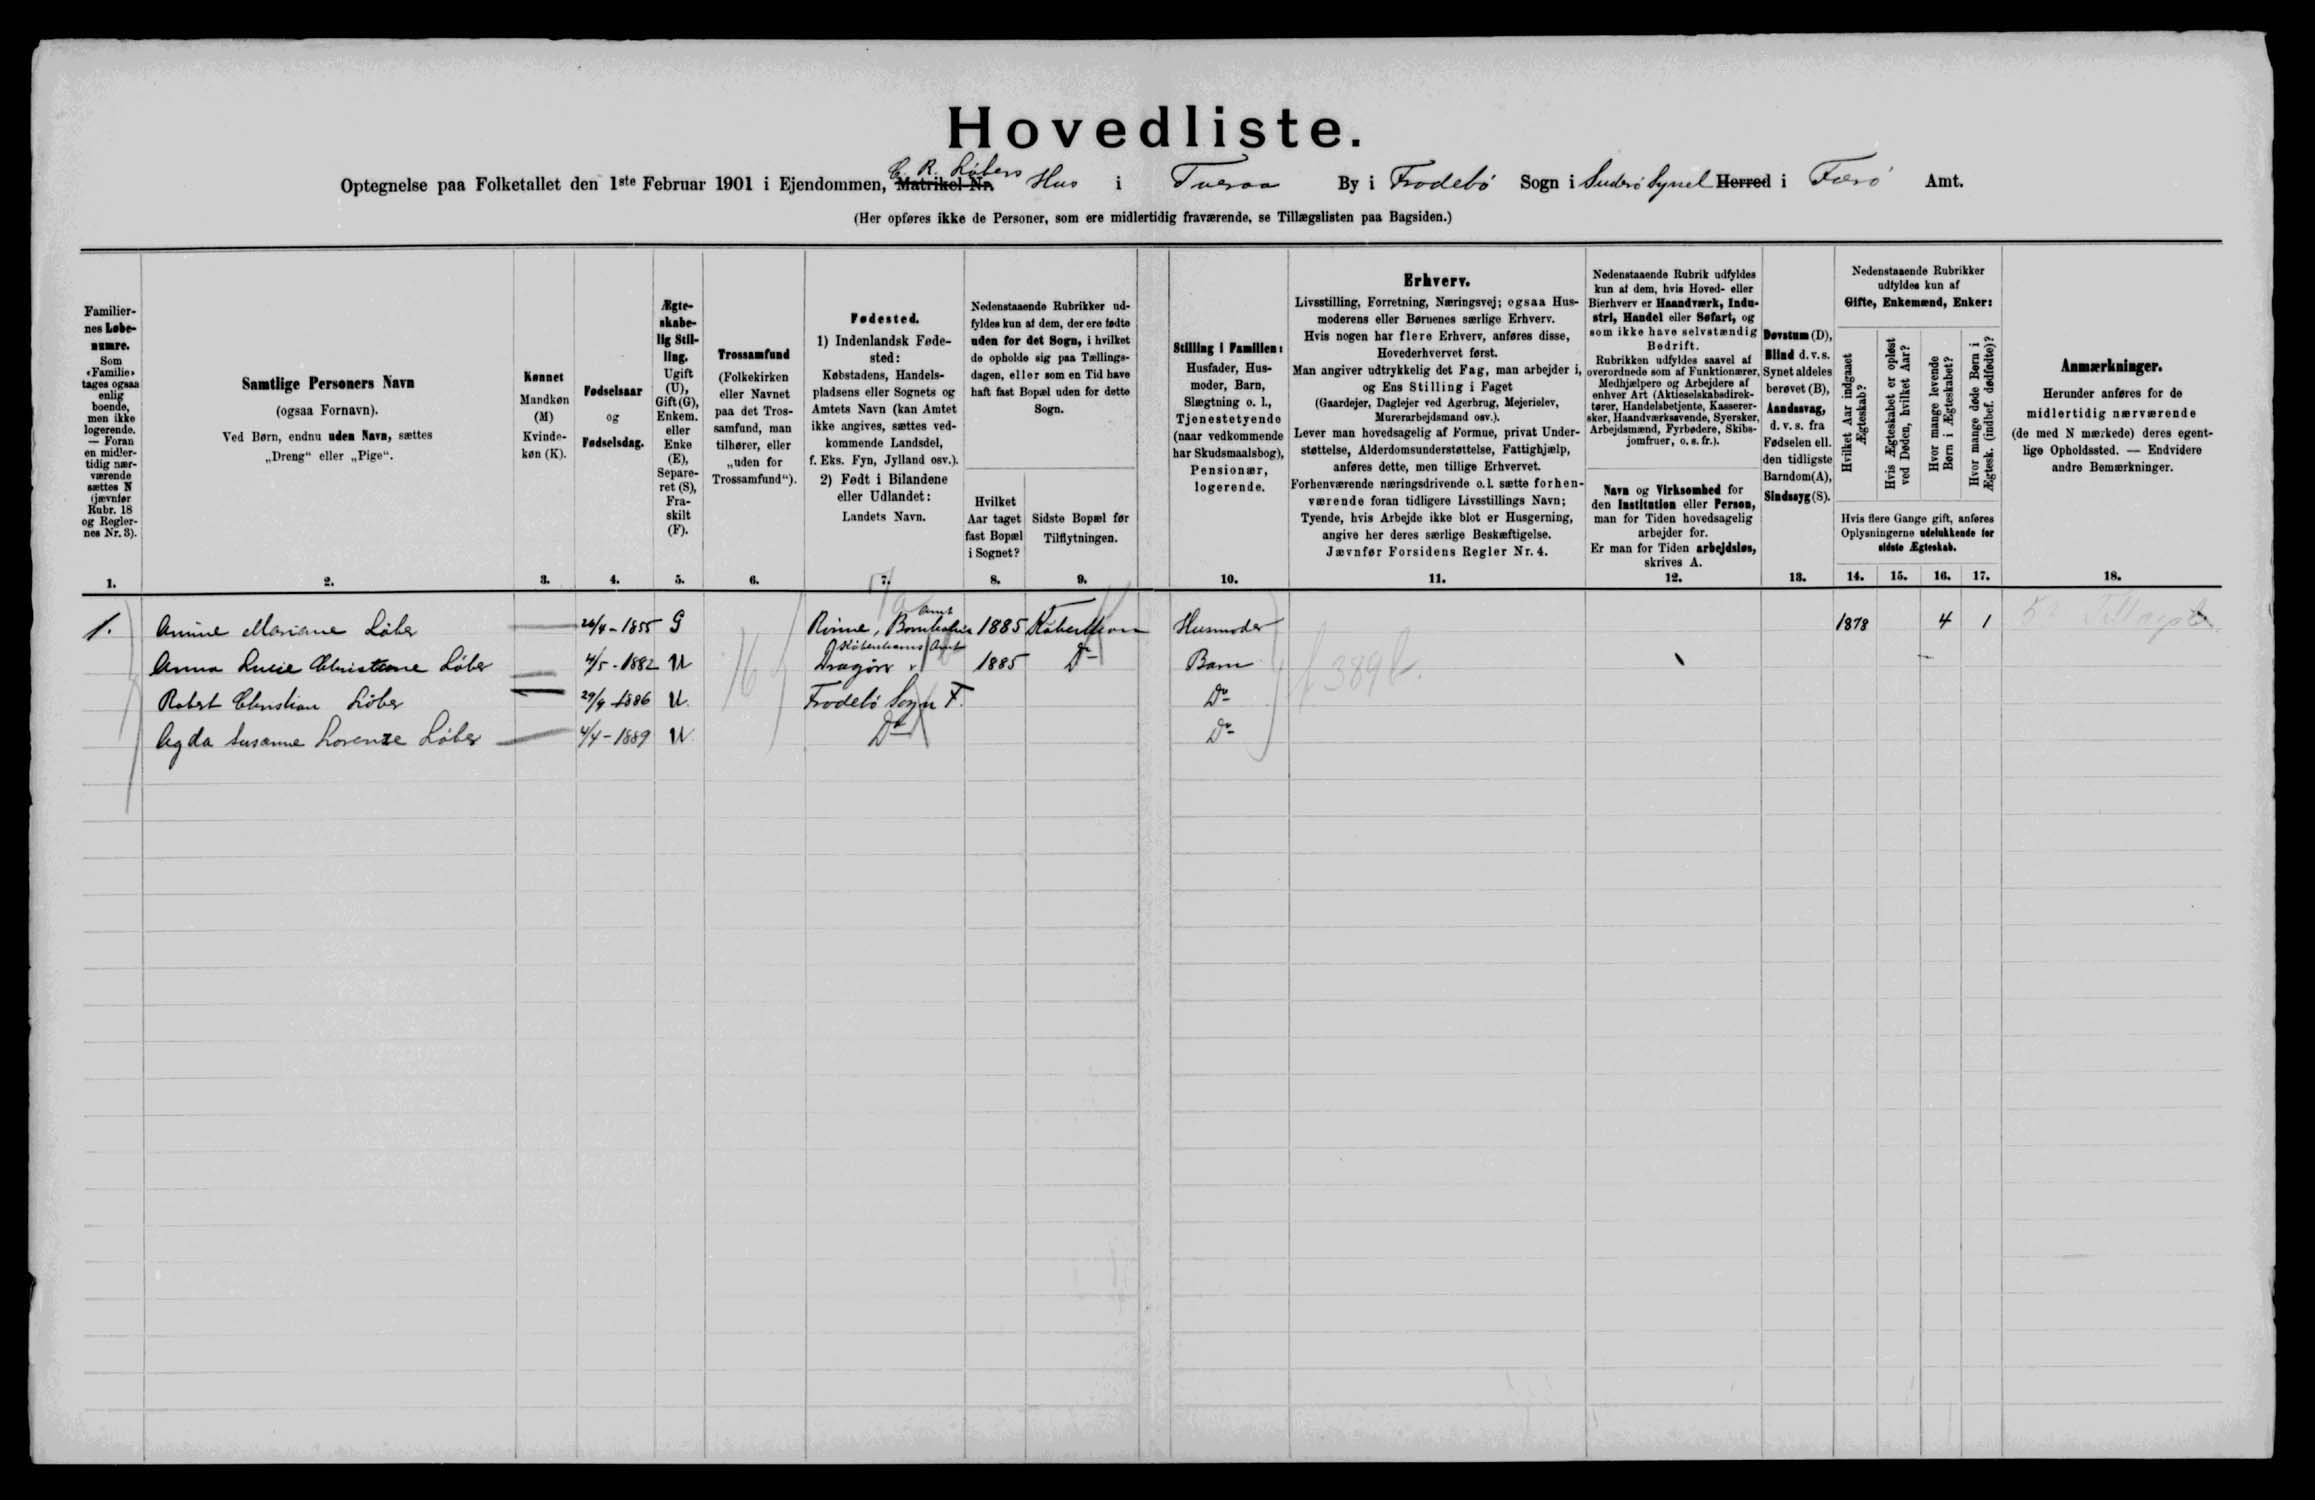 Hovedliste.
C. R. Løbers
Optegnelse paa Folketallet den 1ste Februar 1901 i Ejendommen, Matrikel-Nr. Hus i Tveraa By i Frodebø Sogn i Suderø Syssel Herred i Færø Amt.
(Her opføres ikke de Personer, som ere midlertidig fraværende, se Tillægslisten paa Bagsiden.)
Familier-
nes Løbe-
numre.
Som
«Familie»
tages ogsaa
enlig
boende,
men ikke
logerende.
— Foran
en midler-
tidig nær-
værende
sættes N
(jævnfør
Rubr. 18
og Regler-
nes Nr. 3).
1.
Samtlige Personers Navn
(ogsaa Fornavn).
Ved Børn, endnu uden Navn, sættes
„Dreng“ eller „Pige“.
2.
Kønnet
Mandkøn
(M)
Kvinde-
køn (K).
3.
Fødselsaar
og
Fødselsdag.
4.
Ægte-
skabe-
lig Stil-
ling.
Ugift
(U),
Gift (G),
Enkem.
eller
Enke
(E),
Separe-
ret (S),
Fra-
skilt
(F).
5.
Trossamfund
(Folkekirken
eller Navnet
paa det Tros-
samfund, man
tilhører, eller
„uden for
Trossamfund“).
6.
Fødested.
1) Indenlandsk Føde-
sted:
Købstadens, Handels-
pladsens eller Sognets og
Amtets Navn (kan Amtet
ikke angives, sættes ved-
kommende Landsdel,
f. Eks. Fyn, Jylland osv.).
2) Født i Bilandene
eller Udlandet:
Landets Navn.
7.
Nedenstaaende Rubrikker ud-
fyldes kun af dem, der ere fødte
uden for det Sogn, i hvilket
de opholde sig paa Tællings-
dagen, eller som en Tid have
haft fast Bopæl uden for dette
Sogn.
Hvilket
Aar taget
fast Bopæl
i Sognet?
8.
Sidste Bopæl før
Tilflytningen.
9.
Stilling i Familien:
Husfader, Hus-
moder, Barn,
Slægtning o. l.,
Tjenestetyende
(naar vedkommende
har Skudsmaalsbog),
Pensionær,
logerende.
10.
Erhverv.
Livsstilling, Forretning, Næringsvej; ogsaa Hus-
moderens eller Børnenes særlige Erhverv.
Hvis nogen har flere Erhverv, anføres disse,
Hovederhvervet først.
Man angiver udtrykkelig det Fag, man arbejder i,
og Ens Stilling i Faget
(Gaardejer, Daglejer ved Agerbrug, Mejerielev,
Murerarbejdsmand osv.).
Lever man hovedsagelig af Formue, privat Under-
støttelse, Alderdomsunderstøttelse, Fattighjælp,
anføres dette, men tillige Erhvervet.
Forhenværende næringsdrivende o. l. sætte forhen-
værende foran tidligere Livsstillings Navn;
Tyende, hvis Arbejde ikke blot er Husgerning,
angive her deres særlige Beskæftigelse.
Jævnfør Forsidens Regler Nr. 4.
11.
Nedenstaaende Rubrik udfyldes
kun af dem, hvis Hoved- eller
Bierhverv er Haandværk, Indu-
stri, Handel eller Søfart, og
som ikke have selvstændig
Bedrift.
Rubrikken udfyldes saavel af
overordnede som af Funktionærer,
Medhjælpere og Arbejdere af
enhver Art (Aktieselskabsdirek-
tører, Handelsbetjente, Kasserer-
sker, Haandværkssvende, Syersker,
Arbejdsmænd, Fyrbødere, Skibs-
jomfruer, o. s. fr.).
Navn og Virksomhed for
den Institution eller Person,
man for Tiden hovedsagelig
arbejder for.
Er man for Tiden arbejdsløs,
skrives A.
12.
Døvstum (D),
Blind d. v. s.
Synet aldeles
berøvet (B),
Aandssvag,
d. v. s. fra
Fødselen ell.
den tidligste
Barndom (A),
Sindssyg (S).
13.
Nedenstaaende Rubrikker
udfyldes kun af
Gifte, Enkemænd, Enker:
Hvilket Aar indgaaet
Ægteskab?
Hvis Ægteskabet er opløst
ved Døden, hvilket Aar?
Hvor mange levende
Børn i Ægteskabet?
Hvor mange døde Børn i
Ægtesk. (indbef. dødfødte)?
Hvis flere Gange gift, anføres
Oplysningerne udelukkende for
sidste Ægteskab.
14. 15. 16. 17.
Anmærkninger.
Herunder anføres for de
midlertidig nærværende
(de med N mærkede) deres egent-
lige Opholdssted. — Endvidere
andre Bemærkninger.
18.
1. Amine Mariane Løber 26/4-1855 G Rønne, Bornholms Amt 1885 København Husmoder 1878 4 1
Anna Lucie Christiane Løber 4/5-1882 U Dragør Københavns Amt 1885 Do Barn
Robert Christian Løber 29/9-1886 U. Frodebø Sogn F. Do
Agda Susanne Lorenze Løber 4/4-1889 U Do Do
f 389 b.